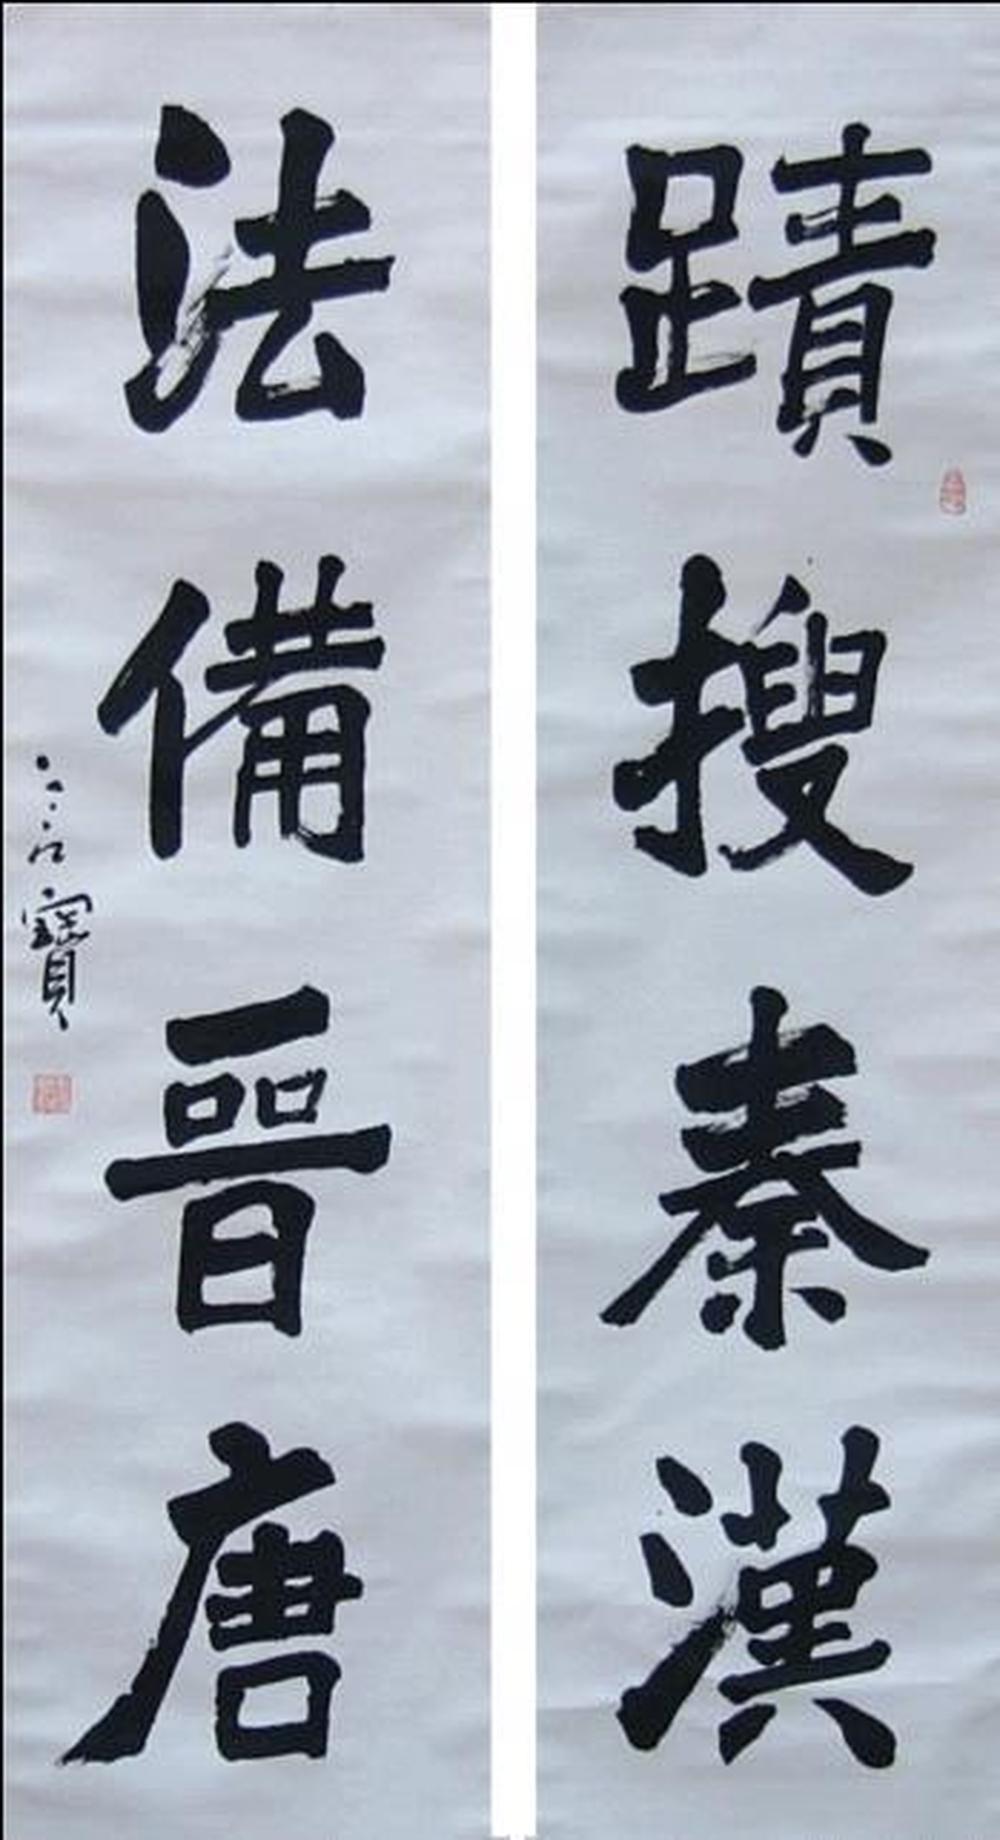 蹟搜秦漢
法備晉唐
寶